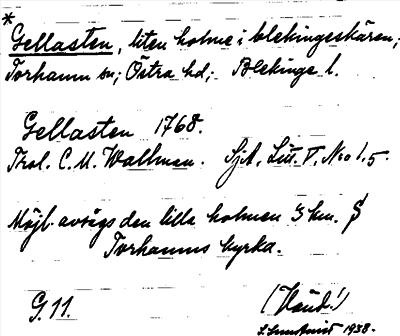 *
Gellasten, liten holme i blekingeskären;
Torhamn sn; Östra hd; Blekinge l.
Gellasten 1768.
Trol. C. U. Wallman. Sjk, Litt. V, No 1.5.
Möjl. avsågs den lilla holmen 3 km. S
Torhamns kyrka.
G. 11.
1938.